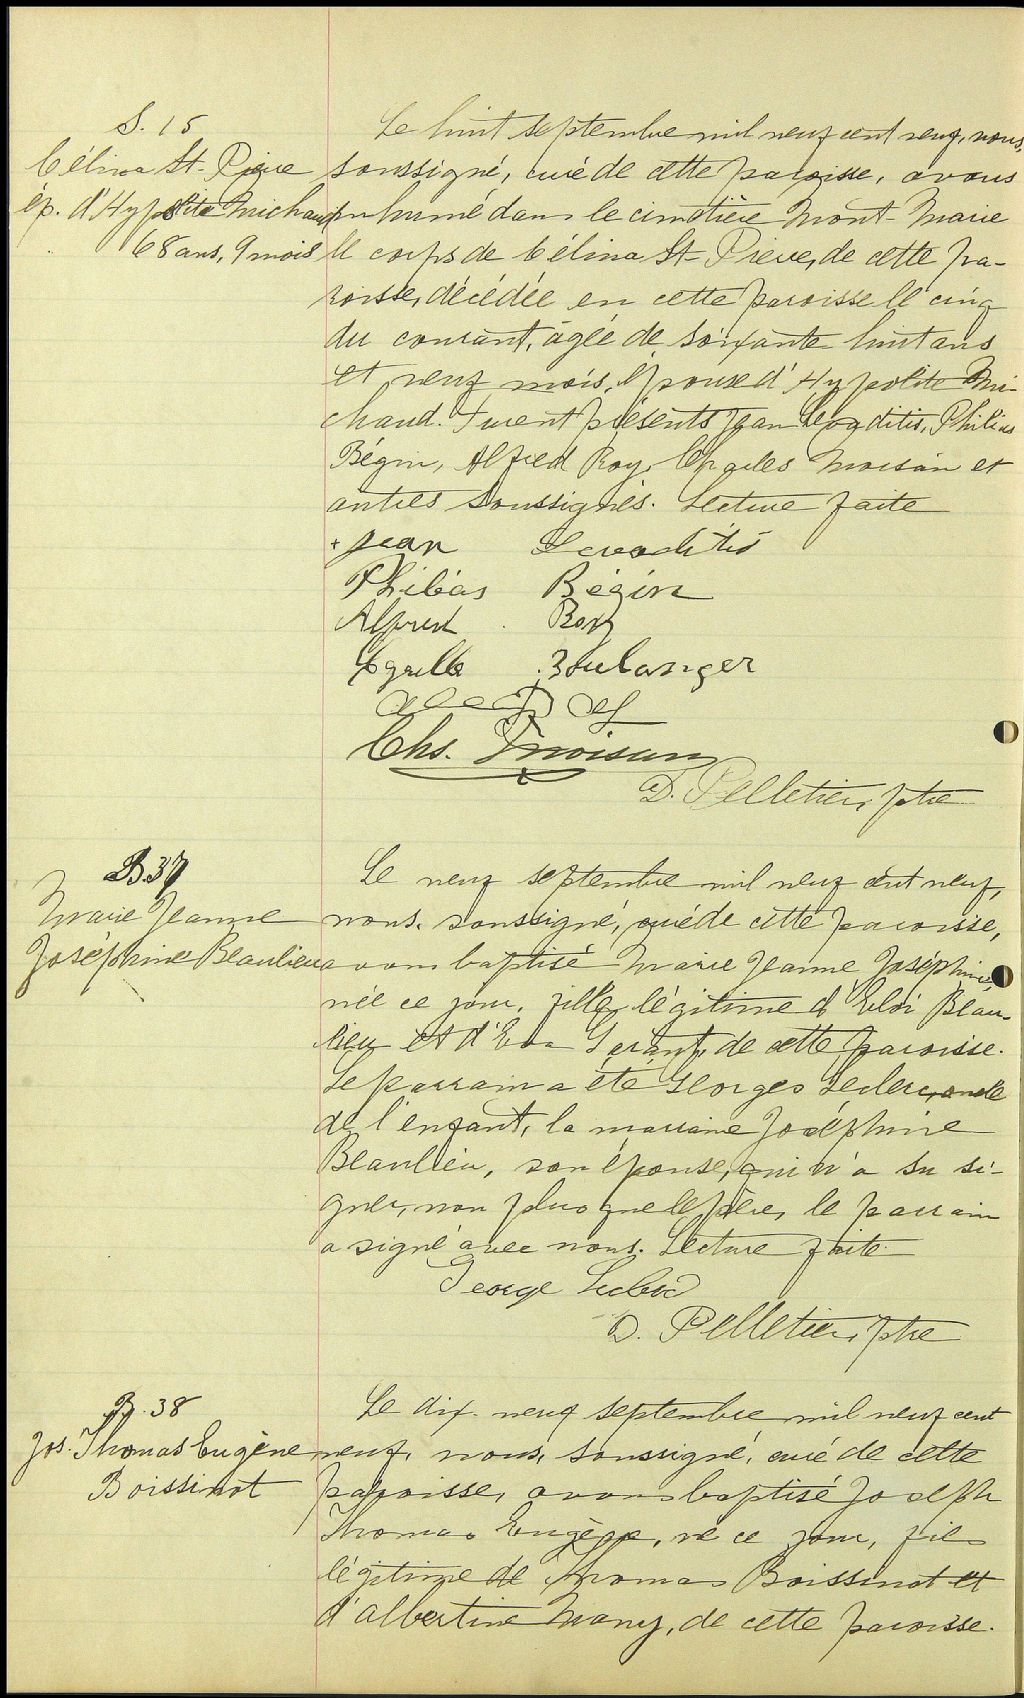 S. 15
Célina St-Pierre
ép. d'Hypolite Michaud
68 ans, 9 mois
Le huit septembre mil neuf cent neuf, nous,
soussigné, curé de cette paroisse, avons
inhumé dans le cimetière Mont-Marie
le corps de Célina St-Pierre, de cette pa-
roisse, décédée en cette paroisse le cinq
du courant, âgée de soixante-huit ans
et neuf mois, épouse d'Hypolite Mi-
chaud. Furent présents Jean Philias
Bégin, Alfred Roy, Charles Moisan et
autres soussignés. Lecture faite
+ Jean
Philéas Bégin
Alfred Roy
Boulanger
Chs. Moisan
D. Pelletier, ptre
B. 37
Marie Jeanne
Joséphine Beaulieu
Le neuf septembre mil neuf cent neuf,
nous, soussigné, curé de cette paroisse,
avons baptisé Marie Jeanne Joséphine,
née ce jour, fille légitime d'Eloi Beau-
lieu et d'Eva de cette paroisse.
Le parrain a été Georges Leclerc, oncle
de l'enfant, la marraine Joséphine
Beaulieu, son épouse, qui n'a su si-
gner, non plus que le père, le parrain
a signé avec nous. Lecture faite.
George Leclerc
D. Pelletier, ptre
B. 38
Jos. Thomas Eugène
Boissinot
Le dix-neuf septembre mil neuf cent
neuf, nous, soussigné, curé de cette
paroisse, avons baptisé Joseph
Thomas Eugène, né ce jour, fils
légitime de Thomas Boissinot et
d'Albertine Many, de cette paroisse.